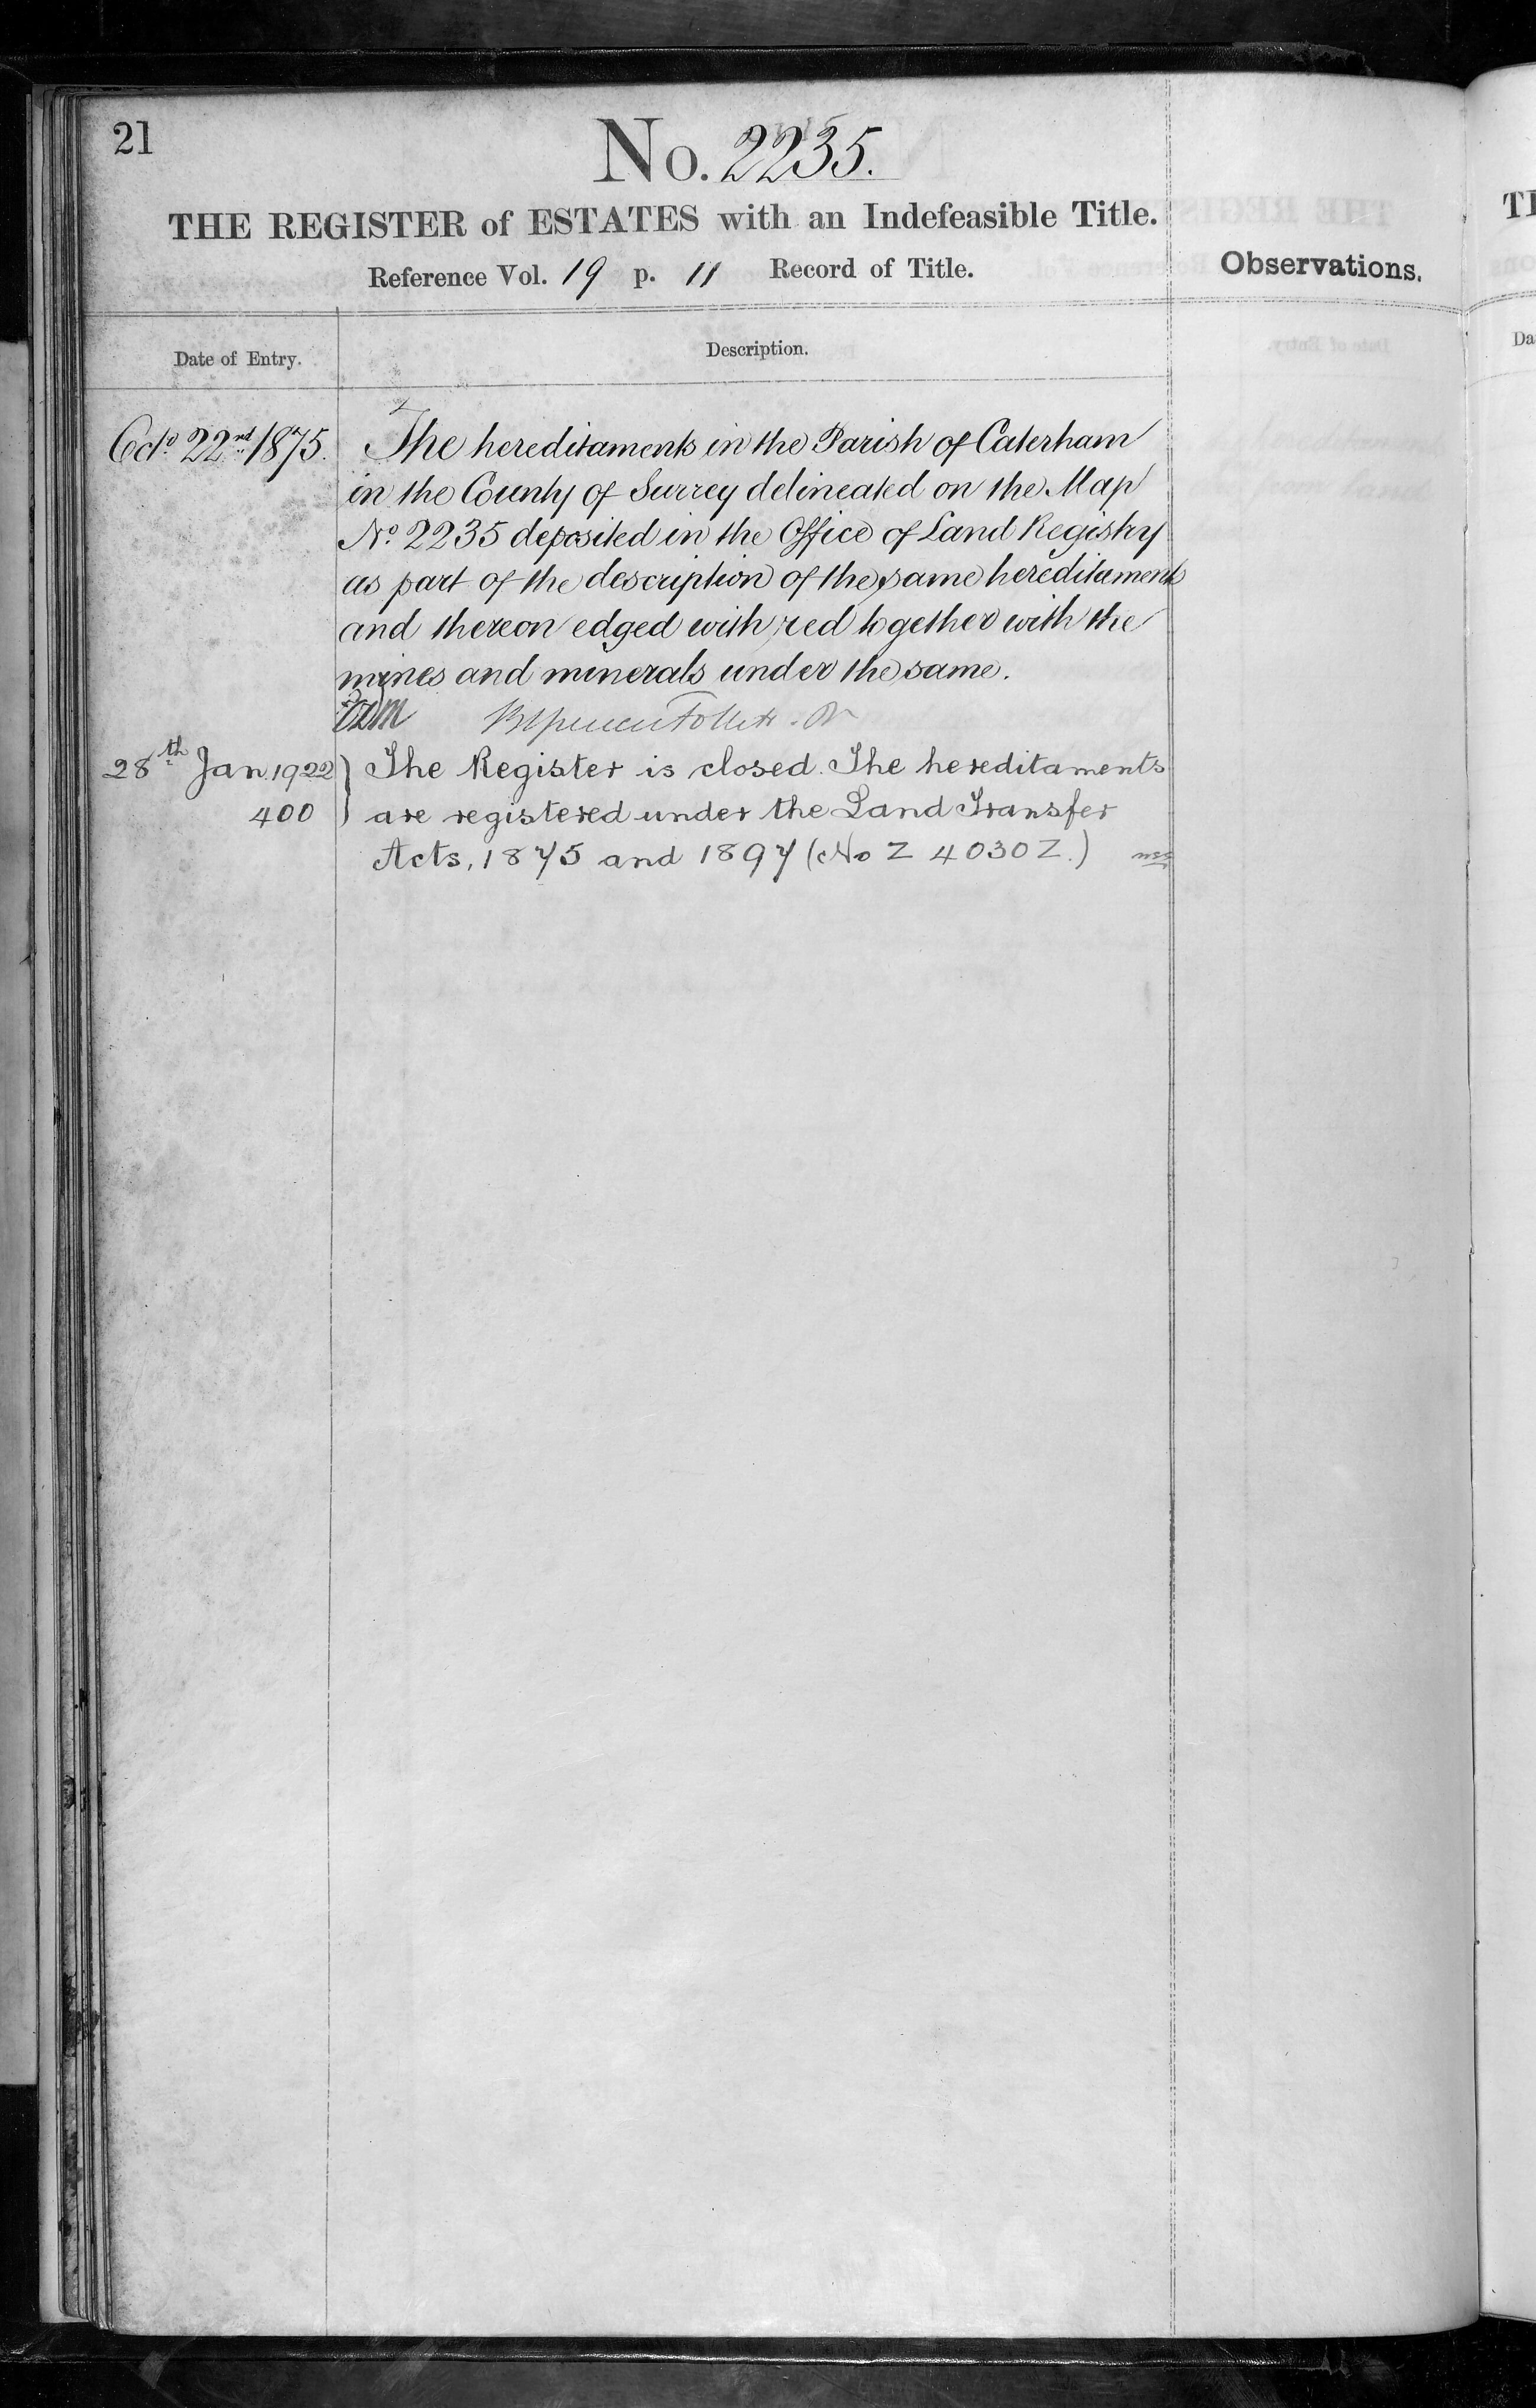 21
No. 2235.
THE REGISTER of ESTATES with an Indefeasible Title.
Reference Vol. 19 p. 11 Record of Title.
Observations.
Date of Entry.
Description.
Octo. 22nd 1875.
The hereditaments in the Parish of Caterham
in the County of Surrey delineated on the Map
No. 2235 deposited in the Office of Land Registry
as part of the description of the same hereditaments
and thereon edged with red together with the
mines and minerals under the same.
28th Jan 1922
400
The Register is closed. The hereditaments
are registered under the Land Transfer
Acts, 1875 and 1897 (No Z 4030Z.)